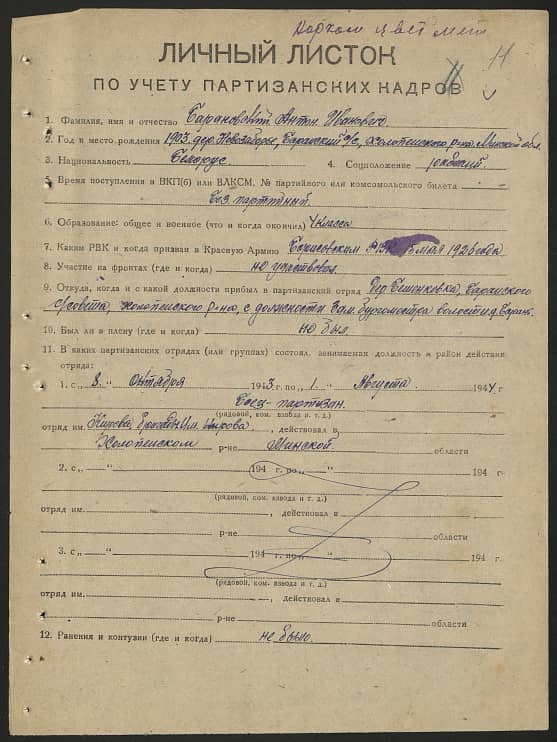 Нарком цвет мет
11
ЛИЧНЫЙ ЛИСТОК
ПО УЧЕТУ ПАРТИЗАНСКИХ КАДРОВ
1. Фамилия, имя и отчество Антон Иванович.
2. Год и место рождения 1903 дер. Новозаборье, с/с, Холопеничского р-на, Минской обл.
3. Национальность Белорус 4. Соцположение рабочий.
5. Время поступления в ВКП(б) или ВЛКСМ, № партийного или комсомольского билета
Без партийный.
6. Образование: общее и военное (что и когда окончил) 4 класса
7. Каким РВК и когда призван в Красную Армию Борисовским РВК мая 1926 года
8. Участие на фронтах (где и когда) не участвовал
9. Откуда, когда и с какой должности прибыл в партизанский отряд Дер.
с/совета, Холопеничского р-на, с должности Зам. Бургомистра волости д.
10. Был ли в плену (где и когда) не был.
11. В каких партизанских отрядах (или группах) состоял, занимаемая должность и район действия
отряда:
1. с „ 8. “ Октября 1943 г. по „ 1. “ Августа 1944 г.
Боец-партизан.
(рядовой, ком. взвода и т. д.)
отряд им. бригады им. Кирова, действовал в
Холопеничском р-не Минской. области
2. с „ “ 194 г. по „ “ 194 г.
(рядовой, ком. взвода и т. д.)
отряд им. , действовал в
р-не области
3. с „ “ 194 г. по „ “ 194 г.
(рядовой, ком. взвода и т. д.)
отряд им. , действовал в
р-не области
12. Ранения и контузии (где и когда) не было.